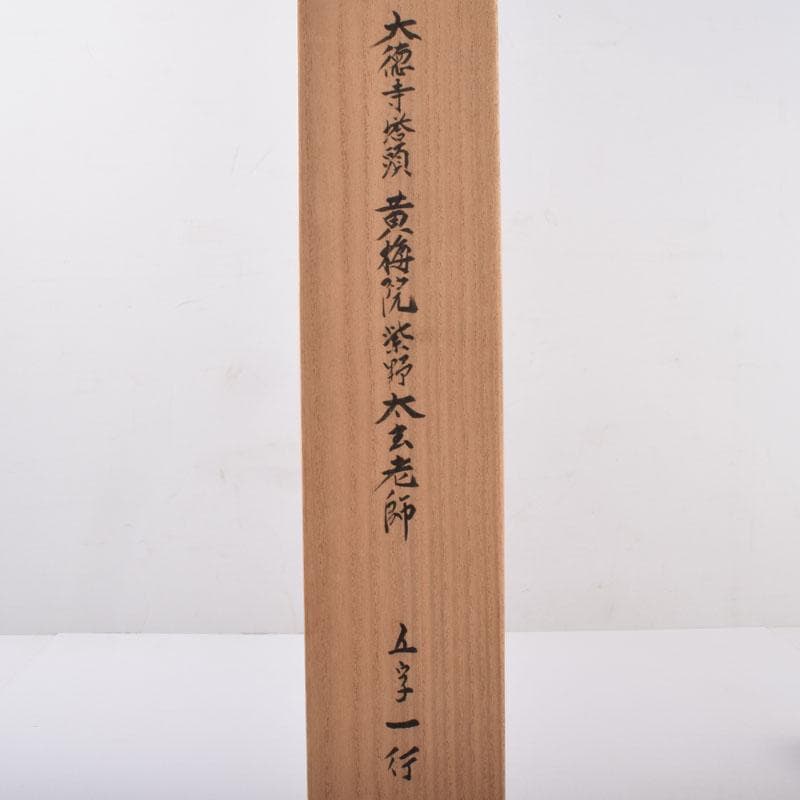 大徳寺塔頭 黄梅院紫野太玄老師 五字一行